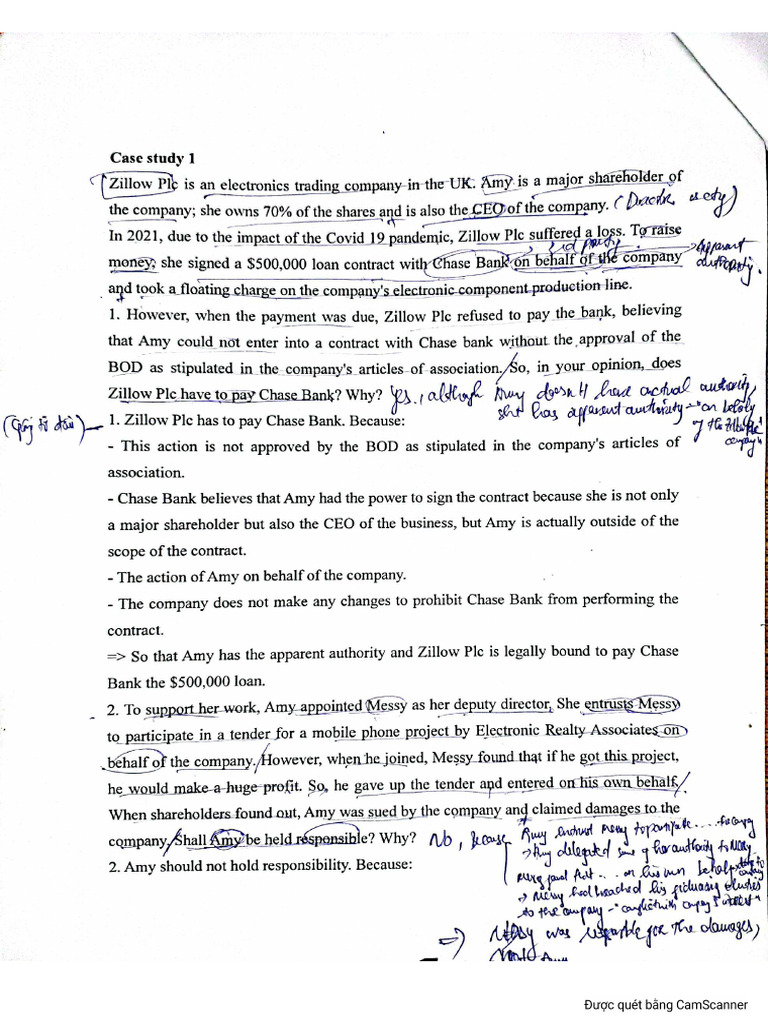 Case study 1
Zillow Plc is an electronics trading company in the UK. Amy is a major shareholder of
the company; she owns 70% of the shares and is also the CEO of the company. (Director
In 2021, due to the impact of the Covid 19 pandemic, Zillow Plc suffered a loss. To raise
3rd party
apparent
money, she signed a $500,000 loan contract with Chase Bank on behalf of the company
authority.
and took a floating charge on the company's electronic component production line.
1. However, when the payment was due, Zillow Plc refused to pay the bank, believing
that Amy could not enter into a contract with Chase bank without the approval of the
BOD as stipulated in the company's articles of association. So, in your opinion, does
Zillow Plc have to pay Chase Bank? Why? Yes, although Amy doesn't have actual authority,
she has apparent authority - "on behalf
of the Zillow Plc
company"
1. Zillow Plc has to pay Chase Bank. Because:
- This action is not approved by the BOD as stipulated in the company's articles of
association.
- Chase Bank believes that Amy had the power to sign the contract because she is not only
a major shareholder but also the CEO of the business, but Amy is actually outside of the
scope of the contract.
- The action of Amy on behalf of the company.
- The company does not make any changes to prohibit Chase Bank from performing the
contract.
=> So that Amy has the apparent authority and Zillow Plc is legally bound to pay Chase
Bank the $500,000 loan.
2. To support her work, Amy appointed Messy as her deputy director, She entrusts Messy
to participate in a tender for a mobile phone project by Electronic Realty Associates on
behalf of the company. However, when he joined, Messy found that if he got this project,
he would make a huge profit. So, he gave up the tender and entered on his own behalf.
When shareholders found out, Amy was sued by the company and claimed damages to the
company. Shall Amy be held responsible? Why? No, because Amy entrust Messy to participate .... company
-> Amy delegated some of her authority to Messy
2. Amy should not hold responsibility. Because:
on his own behalf
-> Messy had breached his fiduciary duties
to the company - "conflict with company's interest"
=> Messy was responsible for the damages,
Amy
Được quét bằng CamScanner